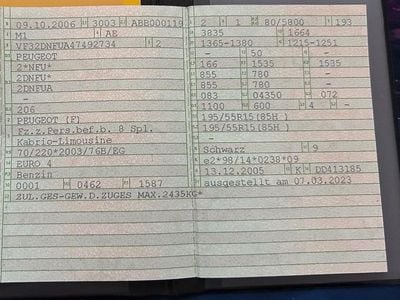 09.10.2006 3003 ABB000119
M1 AE
VF32DNFUA47492734 2
PEUGEOT
2*NFU*
2DNFU*
2DNFUA
-
206
PEUGEOT (F)
Fz.z.Pers.bef.b. 8 Spl.
Kabrio-Limousine
70/220*2003/76B/EG
EURO 4
Benzin
0001 0462 1587
ZUL.GES-GEW.D.ZUGES MAX.2435KG*
2 1 80/5800 193
3835 1664
1365-1380 1215-1251
- 50 - -
166 1535 1535
855 780 -
855 780 -
083 04350 072
1100 600 4 -
195/55R15(85H )
195/55R15(85H )
-
Schwarz 9
e2*98/14*0238*09
13.12.2005 K DD413185
ausgestellt am 07.03.2023